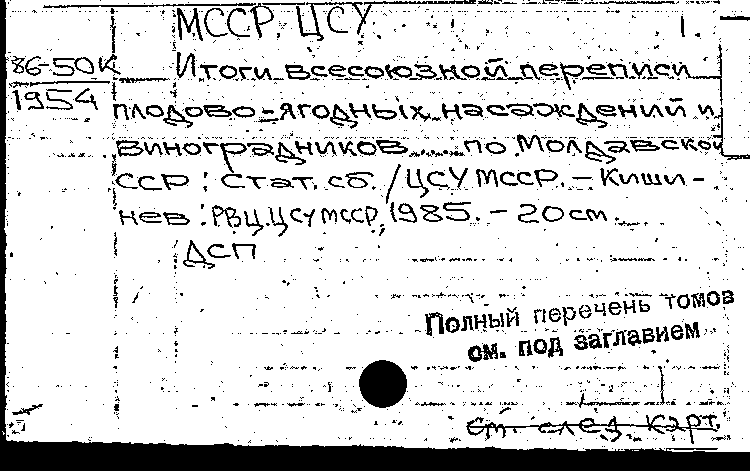 МССР. ЦСУ. 1.
86-50К Итоги всесоюзной переписи
1954 плодово-ягодных насаждений и
виноградников ..... по Молдавской
ССР : Стат. сб. / ЦСУ МССР. – Киши-
нев : РВЦ ЦСУ МССР, 1985. – 20 см.
ДСП
Полный перечень томов
см. под заглавием
См. след. карт.